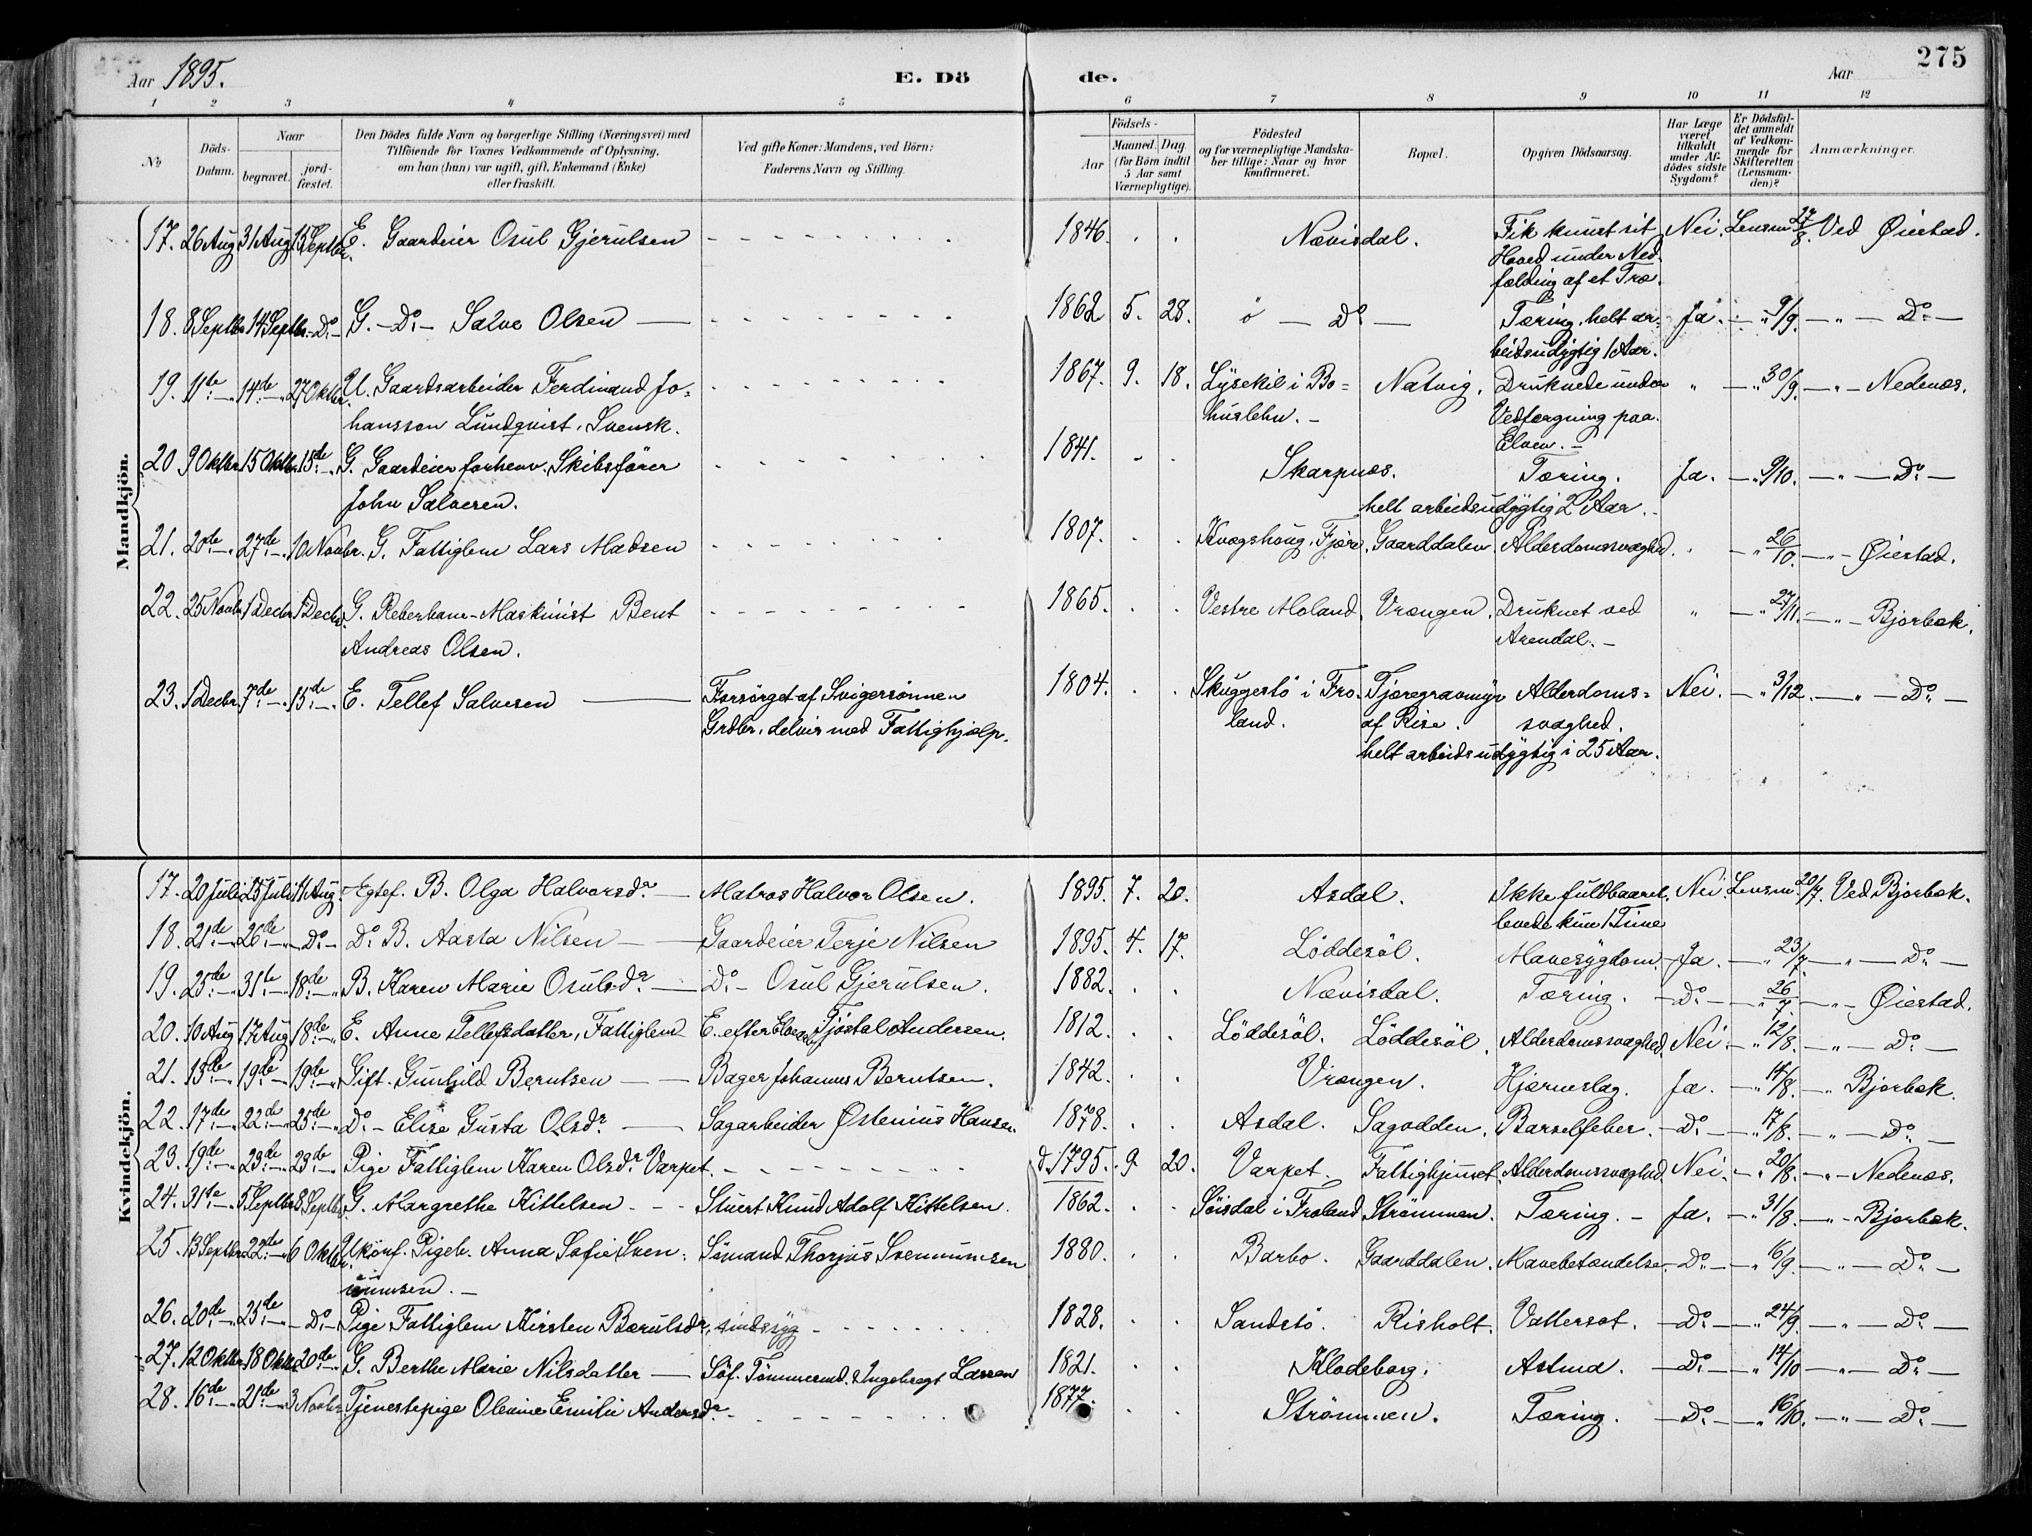 Aar 1895. E. Dö de. Aar 275
1 2 3 4 5 6 7 8 9 10 11 12
№ Döds-Datum. Naar begravet. jord-fæstet. Den Dödes fulde Navn og borgerlige Stilling (Næringsvei) med Tilföiende for Voxnes Vedkommende af Oplysning, om han (hun) var ugift, gift, Enkemand (Enke) eller fraskilt. Ved gifte Koner: Mandens, ved Börn: Faderens Navn og Stilling. Födsels- Aar Maaned. Dag. (for Börn indtil 5 Aar samt Værnepligtige). Födested og for værnepligtige Mandska-ber tillige: Naar og hvor konfirmeret. Bopæl. Opgiven Dödsaarsag. Har Læge været tilkaldt under Af-dödes sidste Sygdom? Er Dödsfal-det anmeldt af Vedkom-mende for Skifteretten (Lensman-den)? Anmærkninger.
Mandkjön.
17. 26 Aug 31 Aug 15 Septbr. E. Gaardeier Osul Gjerulsen - - - 1846. . . Nævisdal. Fik knust sit Nei. Lensm 27/8. Ved Øiestad.
Hoved under Ned-
fælding af et Træ.
18. 8 Septbr 14 Septbr - Do - G. - Do - Salve Olsen - - - 1862 5. 28. ö - Do - Tæring, helt ar- Ja. - " 9/9. - " - Do -
beidsudygtig 1 Aar.
19. 11te - " 14de - " 27 Oktbr. U. Gaardsarbeider Ferdinand Jo- - - - 1867. 9. 18. Lysekil i Bo- Natvig. Druknede under " - " 30/9. - " - Nedenæs.
hansson Lundqvist, Svensk. huslehn. - Vedfærgning paa
Elven. -
20 9 Oktbr 15 Oktbr 15de - ". G. Gaardeier forhenv. Skibsförer - - - 1841. - . Skarpnæs. Tæring. Ja. - " 9/10. - " - Do -
John Salvesen. helt arbeidsudygtig 2 Aar. -
21. 20de - " 27de - " 10 Novbr. G. Fattiglem Lars Madsen - - - 1807. . . Kvagshoug, Fjære. Gaarddalen. Alderdomssvaghed. " - " 26/10. - " - Øiestad.
22. 25 Novbr 1 Decbr 1 Decbr. G. Reberbane-Maskinist Bent - - - 1865. . . Vestre Moland. Vrængen. Druknet ved " - " 27/11. - " - Bjorbæk.
Andreas Olsen. Arendal. -
23. 1 Decbr 7de - ". 15de - ". E. Tellef Salvesen - Forsörget af Svigersönnen 1804. . . Skuggestö i Fro- Tjæregravmyr Alderdoms- Nei. - " 3/12. - " - Do -
Grdbr. delvis med Fattighjælp. land. af Rise. svaghed.
helt arbeidsudygtig i 25 Aar.
Kvindekjön.
17. 20 Juli 25 Juli 11 Aug. Egtef. B. Olga Halvorsdr - Matros Halvor Olsen. 1895. 7. 20. Asdal. Ikke fuldbaaret, Nei. Lensm 20/7. Ved Bjorbæk.
levede kun 1 Time
18. 21de - " 26de - " - Do - Do B. Aasta Nilsen - Gaardeier Terje Nilsen 1895. 4. 17. Löddesöl. Mavesygdom. Ja. - " 23/7. - " - Do -
19. 25de - " 31te - " 18de - " B. Karen Marie Osulsdr - Do - Osul Gjerulsen. 1882. . . Nævisdal. Tæring. - Do - - " 26/7. - " - Øiestad.
20. 10 Aug 17 Aug 18de - ". E. Anne Tellefsdatter, Fattiglem E. efter Tjöstal Andersen. 1812. . . Löddesöl. Löddesöl. Alderdomssvaghed. Nei. - " 12/8. - " - Do -
21. 13de - " 19de - " 19de - " Gift. Gunhild Berntsen - Bager Johannes Berntsen. 1842. . . Vrængen. Hjerneslag. Ja. - " 14/8. - " Bjorbæk.
22. 17de - " 22de - " 25de - " Do - Elise Gusta Olsdr - Sagarbeider Østenius Hansen. 1878. . . Asdal. Sagodden. Barselfeber. - Do - - " 17/8. - " - Do -
23. 19de - " 23de - " 23de - " Pige Fattiglem Karen Olsdr Varpet. - - - d. 1795. 9. 20. Varpet. Fattighjemmet. Alderdomssvaghed. Nei. - " 20/8. - " - Nedenæs.
24. 31te - " 5 Septbr 8 Septbr. G. Margrethe Kittelsen - - Stuert Knud Adolf Kittelsen. 1862. . . Söisdal i Froland Strömmen. Tæring. - Ja. - " 31/8. - " - Bjorbæk.
25. 13 Septbr 22de - " 6 Oktbr. Ukonf. Pigeb. Anna Sofie Sven- Sömand Thorjus Svenumsen 1880. . . Barbo. Gaarddalen. Mavebetændelse. - Do - - " 16/9. - " - Do -
umsen. -
26. 20de - " 25de - " - Do - Pige Fattiglem Kirsten Bærulsdr, sindssyg - - - 1828. . . Sandstö. Risholt. Vattersot. - Do - - " 24/9. - " - Do -
27. 12 Oktbr. 18 Oktbr. 20de - " G. Berthe Marie Nilsdatter - Söf. Tömmermd. Ingebregt Larsen 1821. . . Klodeborg. Astma. - Do - - " 14/10 - " - Do -
28. 16de - " 21de - " 3 Novbr. Tjenestepige Oleane Emilie Andersdr. - - - 1877. . . Strömmen. Tæring. - Do - - " 16/10. - " - Do -